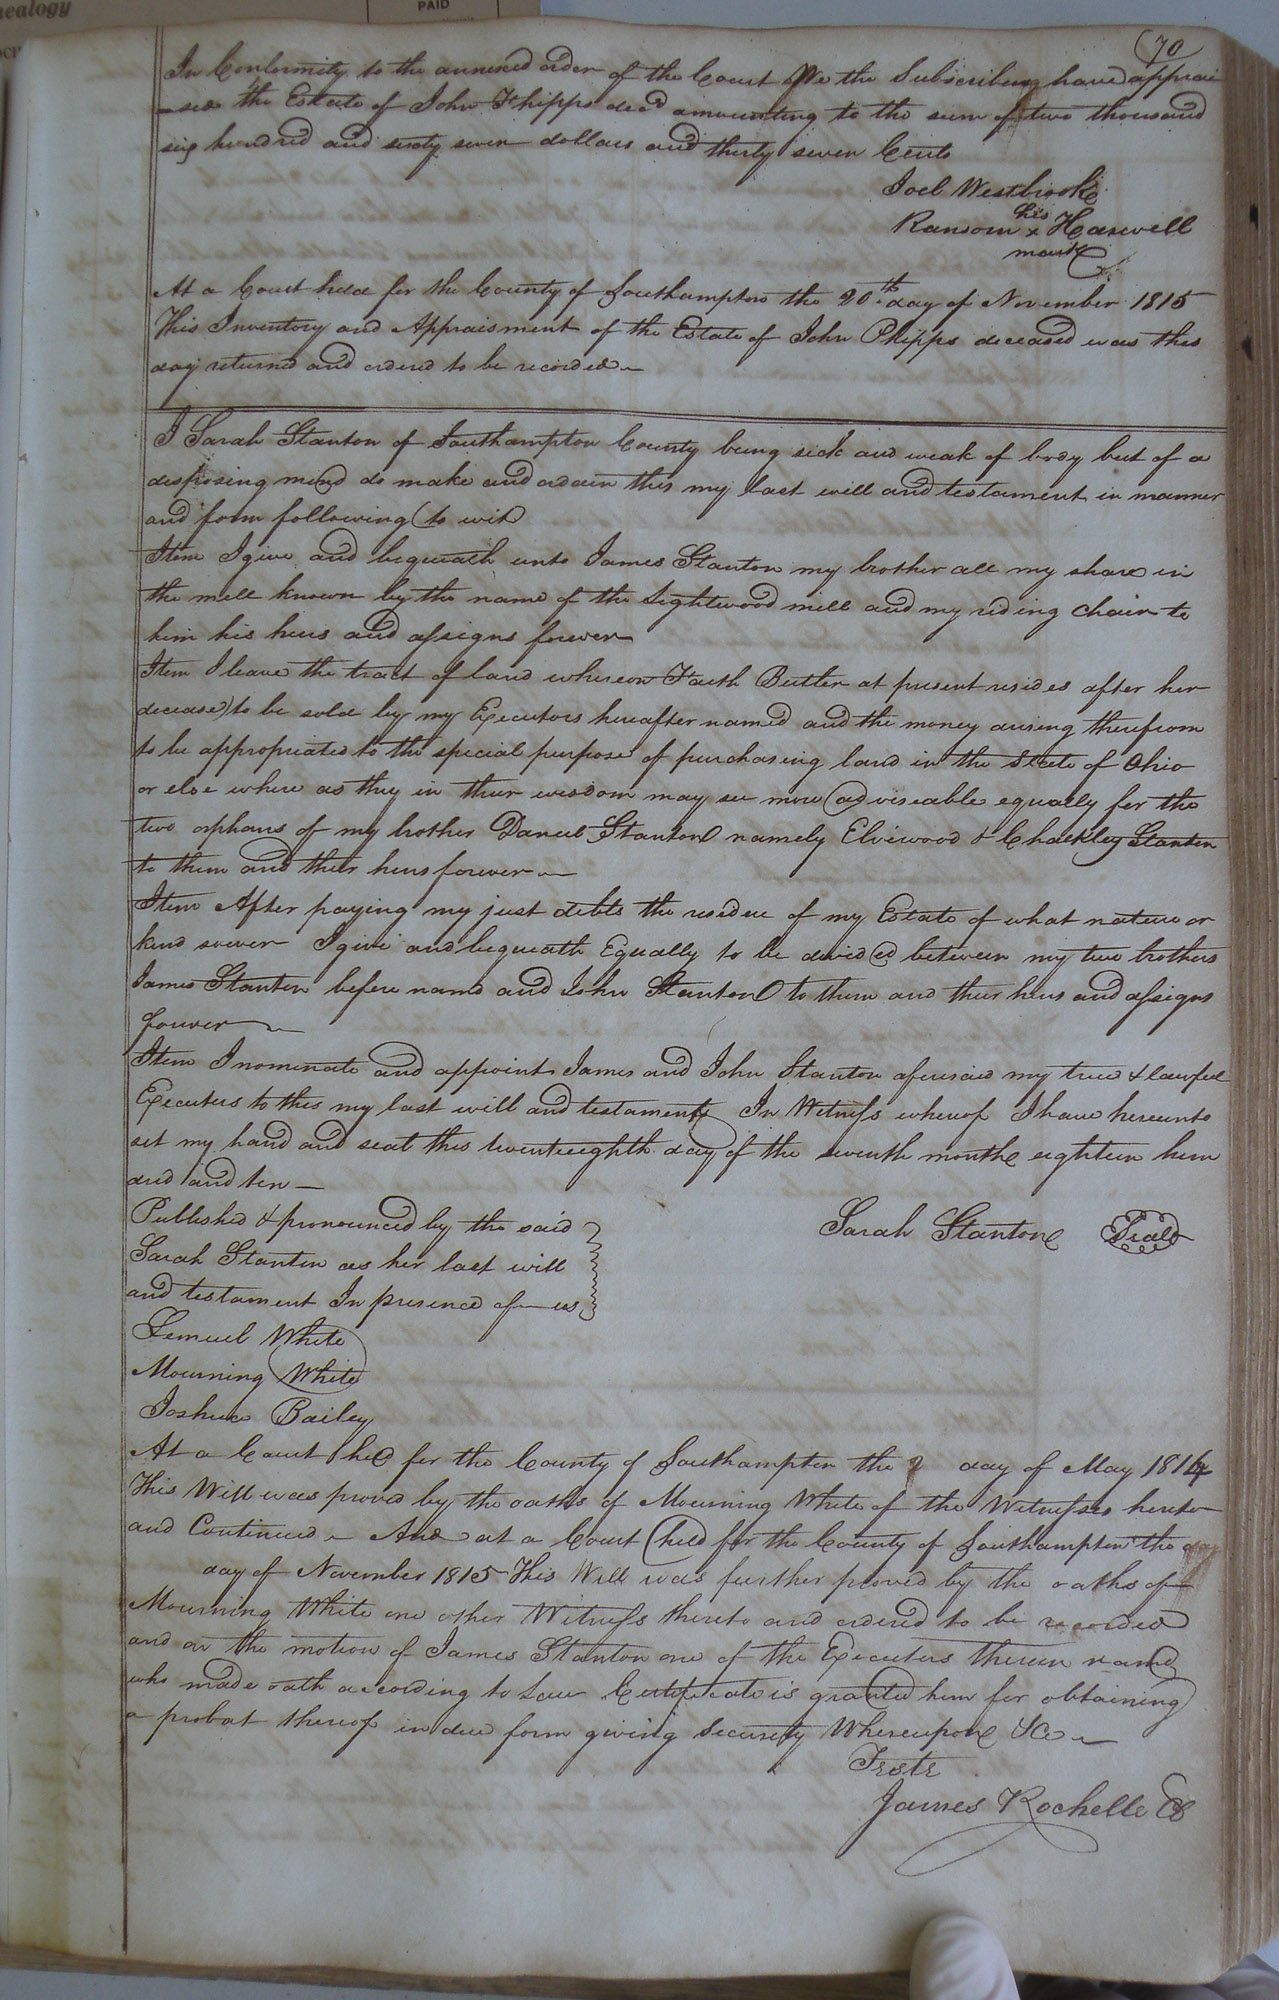 nealogy
PAID
(70
In Conformity to the annexed order of the Court We the Subscribing have apprai
-sed the Estate of John Phipps decd amounting to the sum of two thousand
six hundred and sixty seven dollars and thirty seven Cents
Joel Westbrook
his
Ransom x Harwell
mark
At a Court held for the County of Southampton the 20th day of November 1815
This Inventory and Appraisment of the Estate of John Phipps deceased was this
day returned and ordered to be recorded
I Sarah Stanton of Southampton County being sick and weak of body but of a
disposing mind do make and ordain this my last will and testament in manner
and form following (to wit)
Item I give and bequeath unto James Stanton my brother all my share in
the mill known by the name of the Lightwood mill and my riding Chair to
him his heirs and assigns forever
Item I leave the tract of land whereon Faith Butler at present resides after her
decease) to be sold by my Executors hereafter named and the money arising therefrom
to be appropriated to the special purpose of purchasing land in the State of Ohio
or else where as they in their wisdom may see more adviseable equally for the
two orphans of my brother Daniel Stanton namely Elviwood & Chalkley Stanton
to them and their heirs forever
Item After paying my just debts the residue of my Estate of what nature or
kind soever I give and bequeath Equally to be divided between my two brothers
James Stanton before named and John Stanton to them and their heirs and assigns
forever
Item I nominate and appoint James and John Stanton aforesaid my true & lawful
Executors to this my last will and testament In Witness whereof I have hereunto
set my hand and seal this twentyeighth day of the seventh month eighteen hun
dred and ten —
Published & pronounced by the said
Sarah Stanton as her last will
and testament In presence of us
Sarah Stanton Seal
Lemuel White
Mourning White
Joshua Bailey
At a Court held for the County of Southampton the day of May 1814
This Will was proved by the oaths of Mourning White of the Witnesses hereto
and Continued - And at a Court held for the County of Southampton the day
day of November 1815 This Will was further proved by the oaths of
Mourning White one other Witness thereto and ordered to be recorded
and on the motion of James Stanton one of the Executors therein named
who made oath according to Law Certificate is granted him for obtaining
a probat thereof in due form giving Security Whereupon &c
Teste
James Rochelle